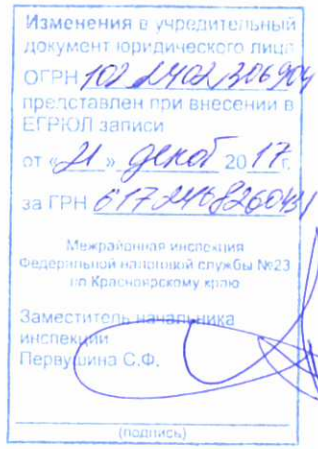 Изменения в учредительный
документ юридического лица
ОГРН 1022402306904
представлен при внесении в
ЕГРЮЛ записи
от «21» декаб 2017г.
за ГРН
Межрайонная инспекция
Федеральной налоговой службы №23
по Красноярскому краю
Заместитель начальника
инспекции
Первушина С.Ф.
(подпись)